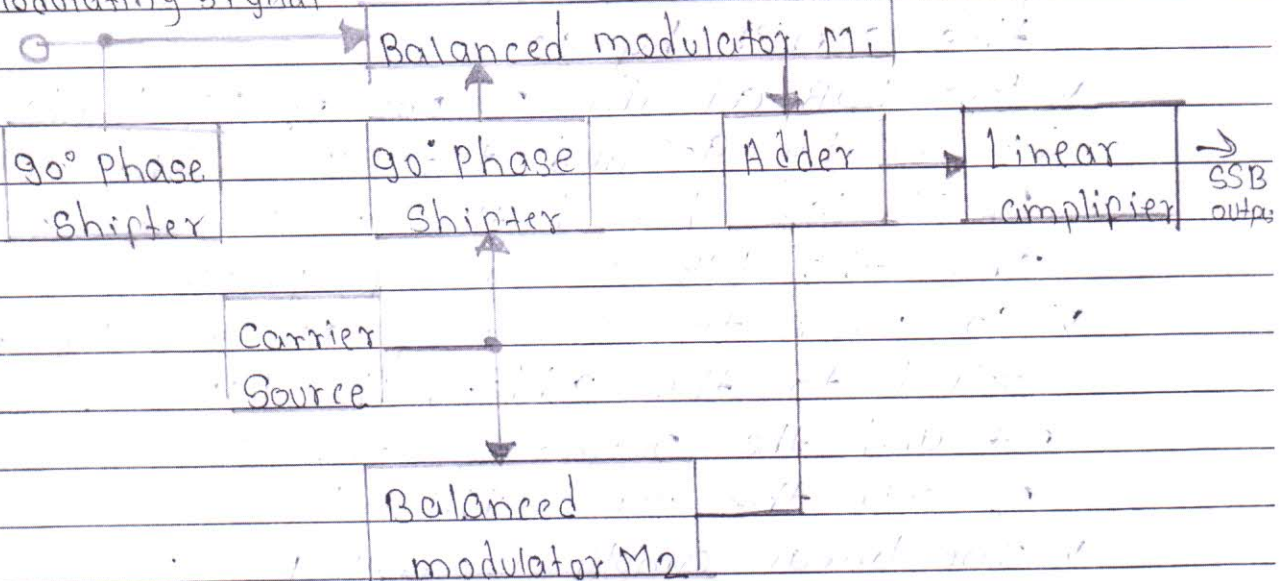 Modulating signal
Balanced modulator M1
90° Phase
Shifter
90° Phase
Shifter
Adder
Linear
amplifier
→
SSB
Carrier
Source
Balanced
modulator M2